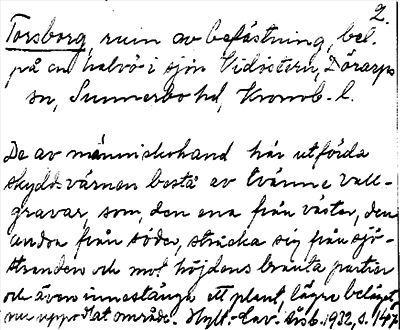 2.
Torsborg, ruin av befästning, bel.
på en halvö i sjön Vidöstern, Dörarps
sn, Sunnerbo hd, Kronob. l.
De av människohand här utförda
skydd-värnen bestå av tvänne vall-
gravar, som, den ena från väster, den
andra från söder, sträcka sig från sjö-
stranden och mot höjdens branta partier
och även innestänga ett plant, lägre beläget
områd. Hylt.-Cav. årsb. 1932, s. 147